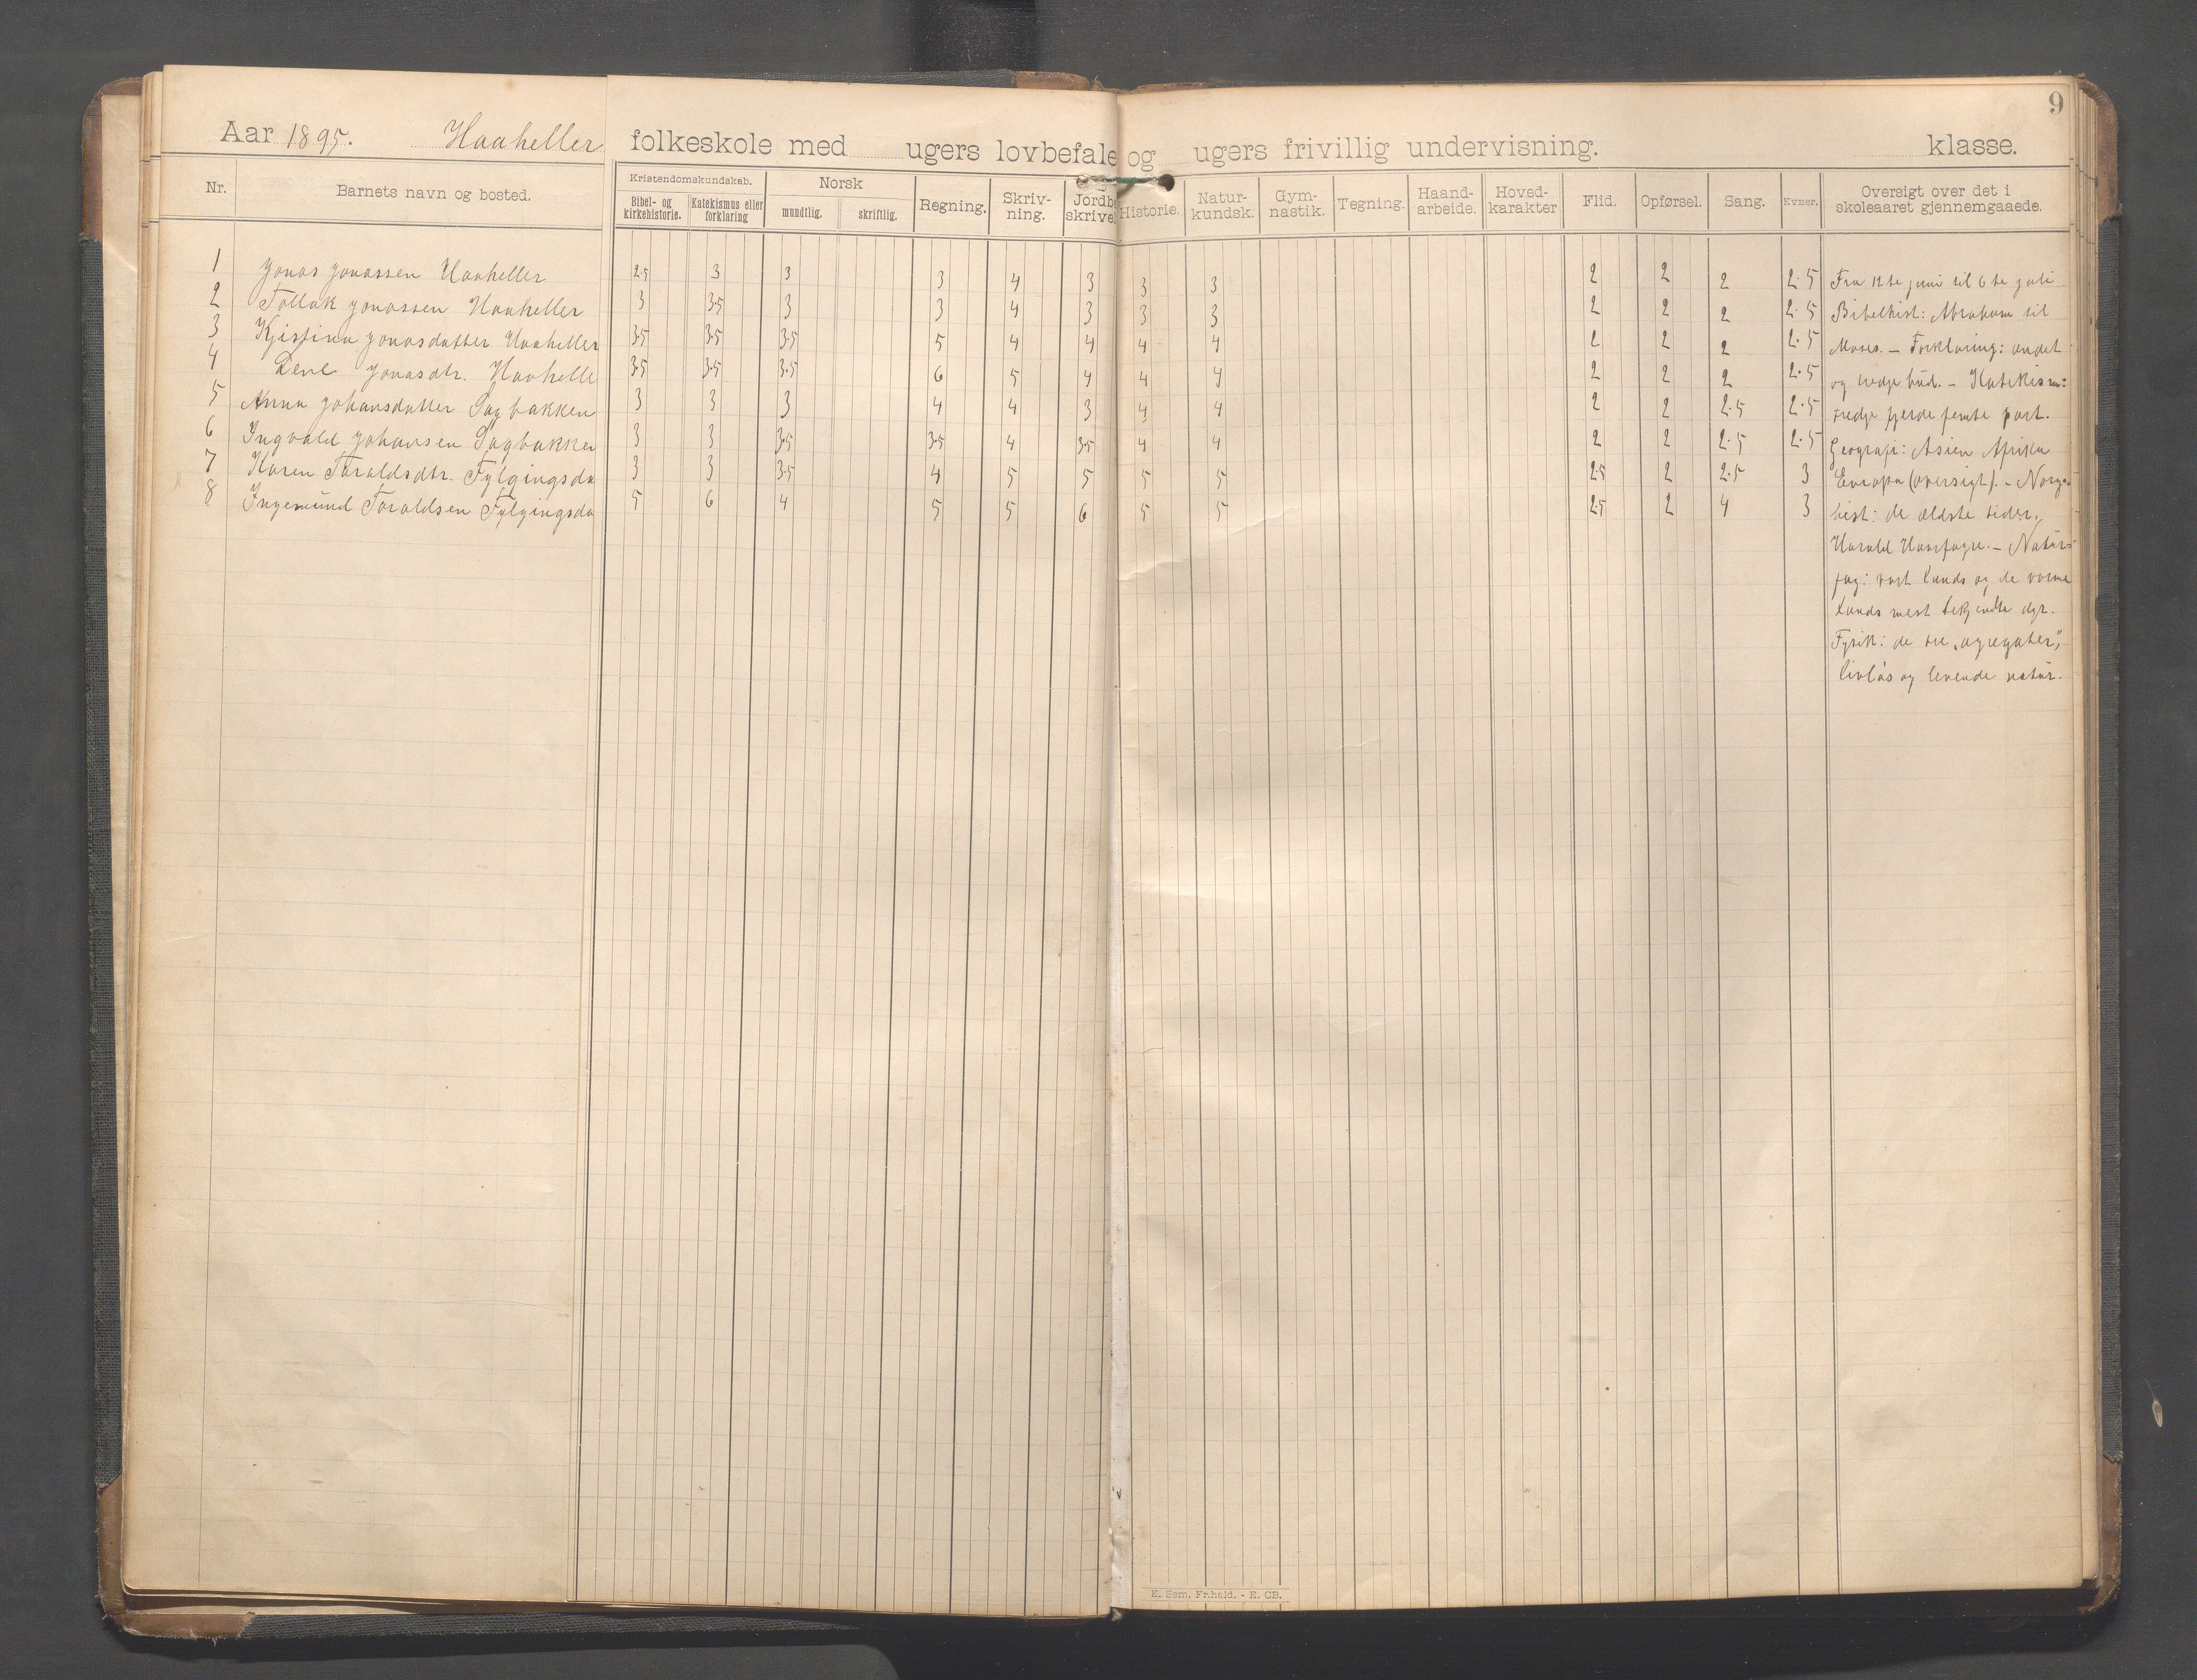 9
Aar 1895. Haaheller folkeskole med ugers lovbefale og ugers frivillig undervisning. klasse.
Nr. Barnets navn og bosted. Kristendomskundskab. Bibel- og kirkehistorie. Katekismus eller forklaring Norsk mundtlig. skriftlig. Regning. Skriv-ning. Jordbe skrivel Historie. Natur-kundsk. Gym-nastik. Tegning. Haand-arbeide. Hoved-karakter Flid. Opførsel. Sang. Evner. Oversigt over det i skoleaaret gjennemgaaede.
1 Jonas Jonassen Haaheller 2.5 3 3 3 4 3 3 3 2 2 2 2.5 Fra 12te juni til 6te juli
2 Tollak Jonassen Haaheller 3 3.5 3 3 4 3 3 3 2 2 2 2.5 Bibelhist: Abraham til
3 Kjistina Jonasdatter Haaheller 3.5 3.5 3.5 5 4 4 4 4 2 2 2 2.5 Moses. – Forklaring: andet
4 Lene Jonasdtr. Haahelle 3.5 3.5 3.5 6 5 4 4 4 2 2 2 2.5 og tredje bud. – Katekism:
5 Anna Johansdatter Sagbakken 3 3 3 4 4 3 4 4 2 2 2.5 2.5 tredje fjerde femte part.
6 Ingvald Johansen Sagbakken 3 3 3.5 3.5 4 3.5 4 4 2 2 2.5 2.5 Geografi: Asien Afrika
7 Karen Taraldsdtr. Fylgingsda 3 3 3.5 4 5 5 5 5 2.5 2 2.5 3 Europa (oversigt). – Norges
8 Ingemund Taraldsen Fylgingsda 5 6 4 5 5 6 5 5 2.5 2 4 3 hist: de ældste tider,
Harald Haarfagre. – Natur-
fag: vort lands og de varme
lands mest bekjendte dyr.
Fysik: de tre „agregater",
livløs og levende natur.
E. Sem, Fr.hald. - E. CB.